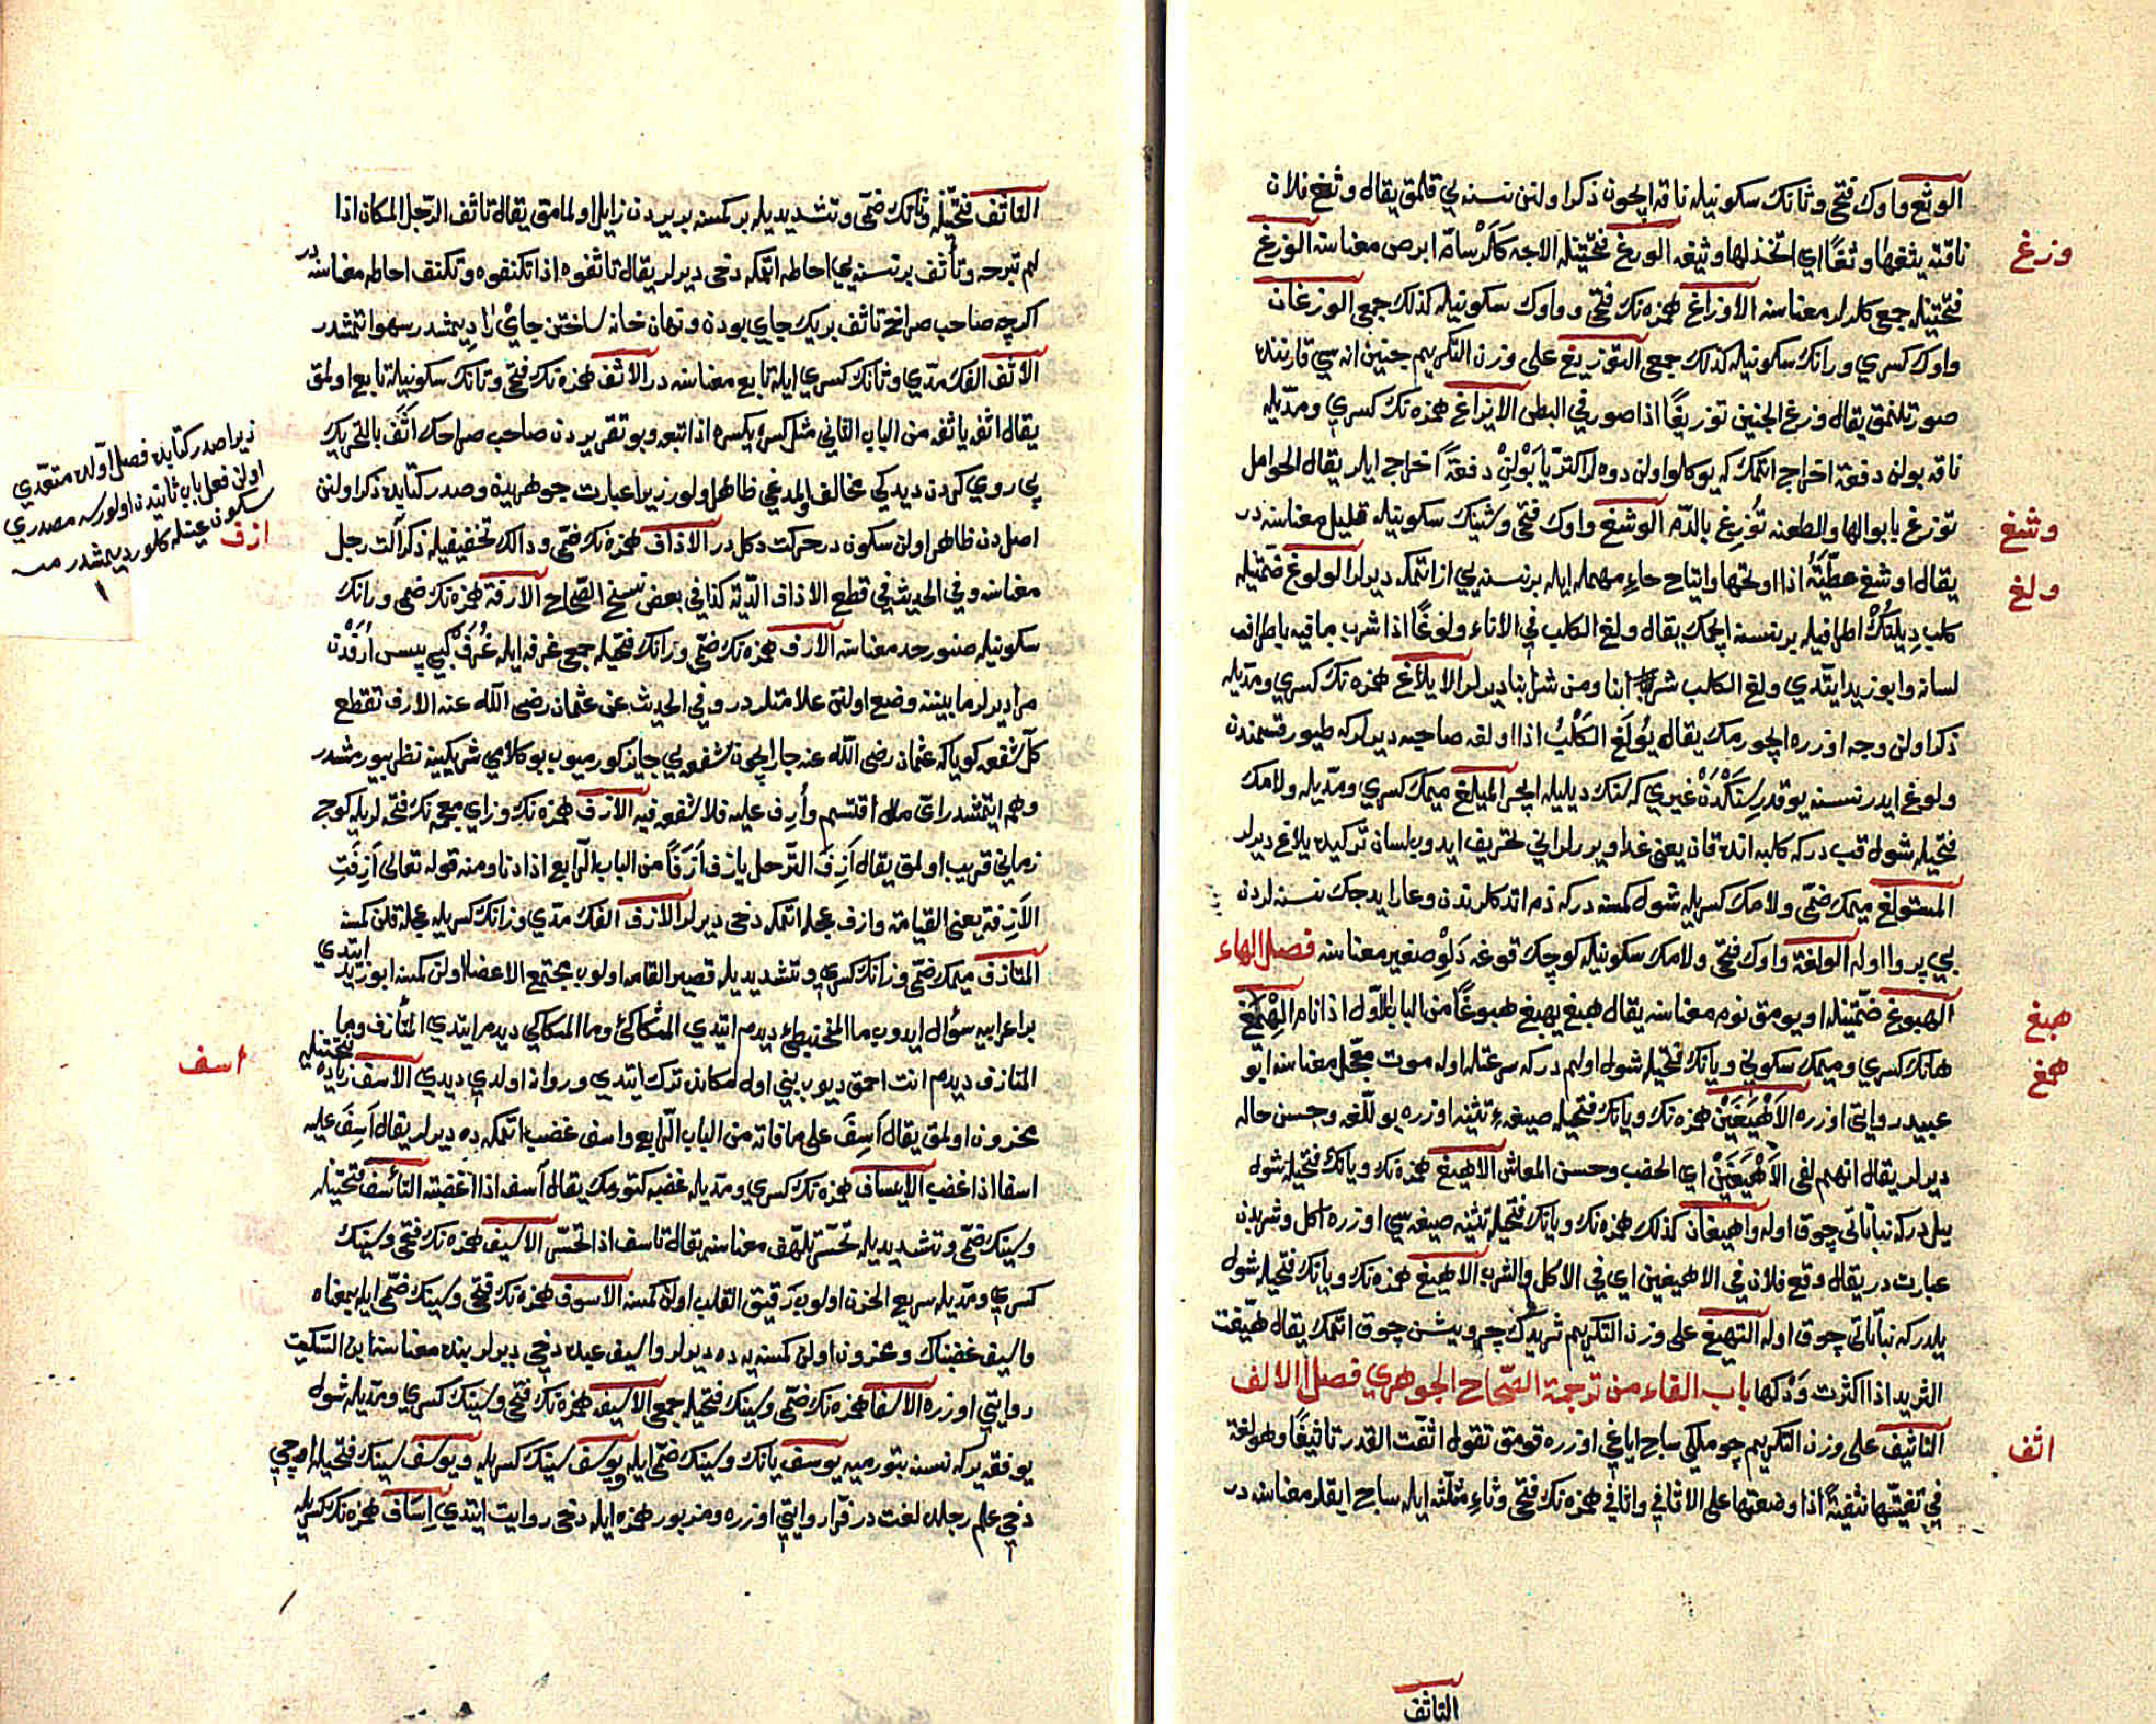 الوثغ واوك فتحى وثانك سكونيله ناقه ايچون ذكر اولنن نسنه يي قلمق يقال وثغ فلان
وزغ
ناقته يثغها وثغا اي اتخذ لها وثيغه الوزغ فتحتينله الاجه كلر سام ابرص معناسنه الوزغ
فتحتينله جمعى كلرلر معناسنه الاوزاغ همزه نك فتحى و واوك سكونيله كذلك جمعى الوزغان
واوك كسرى ورانك سكونيله كذلك جمعى التوزيغ على وزن التكريم جنين انه سي قارننده
صورتلنمق يقال وزغ الجنين توزيغا اذا صور في البطن الايزاغ همزه نك كسرى ومديله
ناقه بولن دفعة اخراج اتمك كه يوكلو اولن دوه لر اكثريا بولن دفعة اخراج ايلر يقال الحوامل
وشغ
توزغ بابوالها والطعنه توزغ بالدم الوشغ واوك فتحى وشينك سكونيله قليل معناسنه در
ولغ
يقال اوشغ عطيته اذا اوتحها واتياح حاء مهمله ايله بر نسنه يي از اتمكه ديرلر الولوغ ضمتينله
كلب ديلنك اطرافيله بر نسنه ايچمك يقال ولغ الكلب في الاناء ولوغا اذا شرب ما فيه باطراف
لسانه وابو زيد ايتدي ولغ الكلب شرابنا ومن شرابنا ديرلر الايلاغ همزه نك كسرى ومديله
ذكر اولن وجه اوزره ايچورمك يقال يولغ الكلب اذا اولغه صاحبه ديرلر كه طيور قسمندن
ولوغ ايدر نسنه يوقدر سنكدن غيري كه سنك ديليله ايچر الميلغ ميمك كسرى ومديله ولامك
فتحيله شول قب در كه كلبه انده قان يعنى غدا ويررلر انى تحريف ايدوب لسان تركيده يلاغ ديرلر
المستولغ ميمك ضمى ولامك كسريله شول كمسنه در كه ذم اتدكلرندن وعار ايدجك نسنه لردن
بي پروا اوله الولغة واوك فتحى ولامك سكونيله كوچك قوغه دلو صغير معناسنه فصل الهاء
هبغ
الهبوغ ضمتينله اويومق نوم معناسنه يقال هبغ يهبغ هبوغا من الباب الاول اذا نام الهميغ
همغ
هانك كسرى وميمك سكونى ويانك فتحيله شول اولم در كه سرعتله اوله موت معجل معناسنه ابو
عبيد روايتى اوزره الاهيغين همزه نك ويانك فتحيله صيغه تثنيه اوزره بوللغه وحسن حاله
ديرلر يقال انهم لفى الاهيغين اي الخصب وحسن المعاش الاهيغ همزه نك ويانك فتحيله شول
ييل در كه نباتاتى چوق اوله واهيغان كذلك همزه نك ويانك فتحيله تثنيه صيغه سي اوزره اكل وشربدن
عبارت در يقال وقع فلان في الاهيغين اي في الاكل والشرب الاهيغ همزه نك ويانك فتحيله شول
ييلدر كه نباتاتى چوق اوله التهيغ على وزن التكريم ثريدك چرويشن چوق اتمك يقال هيغت
الثريد اذا اكثرت ودكها باب الفاء من ترجمة الصحاح الجوهري فصل الالف
اثف
التاثيف على وزن التكريم چوملكى ساج اياغى اوزره قومق تقول اثفت القدر تاثيفا وهو لغة
في ثفيتها تثفية اذا وضعتها على الاثافي واثافي همزه نك فتحى وثاء مثلثه ايله ساج ايقلر معناسنه در
التاثف
التاثف فتحتينله وثانك ضمى وتشديديله بر كمسنه بر يردن زايل اولمامق يقال تاثف الرجل المكان اذا
لم تبرحه وتاثف بر نسنه يي احاطه اتمكه دخى ديرلر يقال تاثفوه اذا تكنفوه وتكنف احاطه معناسنه در
اكرچه صاحب صراح تاثف بر يك جاي بودن ونهان خانه ساختن جاي را ديمشدر سهو اتمشدر
الاثف الفك مدى وثانك كسرى ايله تابع معناسنه در الاثف همزه نك فتحى وثانك سكونيله تابع اولمق
يقال اثفه ياثفه من الباب الثاني مثل كسره يكسره اذا اتبعه وبو تقريردن صاحب صراحك اثف بالتحريك
پي روي كردن ديدكى مخالف المدعى ظاهر اولور زيرا عبارت جوهريده وصدر كتابده ذكر اولنن
اصلدن ظاهر اولن سكون در حركت دكلدر الاذاف همزه نك ضمى ودالك تخفيفيله ذكر آلت رجل
معناسنه وفي الحديث في قطع الاذاف الدية كذا في بعض نسخ الصحاح الارفة همزه نك ضمى ورانك
سكونيله صنور حد معناسنه الارف همزه نك ضمى ورانك فتحيله جمعى غرفه ايله غرف كبي
مراد يرلر مابيننه وضع اولنن علامتلردر وفي الحديث عن عثمان رضى الله عنه الارف تقطع
كل شفعه كويا كه عثمان رضى الله عنه جار ايچون شفعه يي جايز كورميوب بو كلامي شريكينه نظر بيورمشدر
وهم ايتمشدر اي مال اقتسم وأرف عليه فلا شفعه فيه الازف همزه نك وزاي معجمه نك فتحه لريله كوچ
زمانى قريب اولمق يقال أزف الترحل يازف أزفا من الباب الرابع اذا دنا ومنه قوله تعالى أزفت
الآزفة يعنى القيامة وازف عجله اتمكه دخى ديرلر الآزف الفك مدى وزانك كسريله عجله قلن كمسنه
المتازف ميمك ضمى وزانك كسرى وتشديديله قصير القامه اولوب مجتمع الاعضا اولن كمسنه ابو زيد ايتدي
بر اعرابيه سؤال ايدوب ما المحبنطئ ديدم ايتدي المتكاكئ وما المتكاكئ ديدم ايتدي المتآزف وما
المتازف ديدم انت احمق ديوب بني اول مكانده ترك ايتدي وروانه اولدي ديدي الاسف فتحتينله زياده
اسف
محزون اولمق يقال أسف على ما فاته من الباب الرابع واسف غضب اتمكه ده ديرلر يقال أسف عليه
اسفا اذا غضب الايساف همزه نك كسرى ومديله غضبه كتورمك يقال آسفه اذا اغضبته التاسف فتحتينله
وسينك ضمى وتشديديله تحسر تلهف معناسنه يقال تاسف اذا تحسر الاسيف همزه نك فتحى وسينك
كسرى ومديله سريع الحزن اولوب رقيق القلب اولن كمسنه الاسوف همزه نك فتحى وسينك ضمى ايله بمعناه
واسيف غضبناك ومحزون اولن كمسنه يه ده ديرلر واسيف عبده دخى ديرلر بنده معناسنه ابن السكيت
روايتى اوزره الاسفا همزه نك ضمى وسينك فتحيله جمعى الاسيف همزه نك فتحى وسينك كسرى ومديله شول
يوفقه ير كه نسنه بتورميه يوسف يانك وسينك ضمى ايله ويوسف سينك كسريله ويوسف سينك فتحيله اوچي
دخى علم رجلده لغت در فرا روايتى اوزره ومزبور همزه ايله دخى روايت ايتدي إساف همزه نك كسريله
زيرا صدر كتابده فصل اولده متعدي
اولن فعل باب ثانيدن اولورسه مصدري
سكون عينله كلور ديمشدر منه
ازف